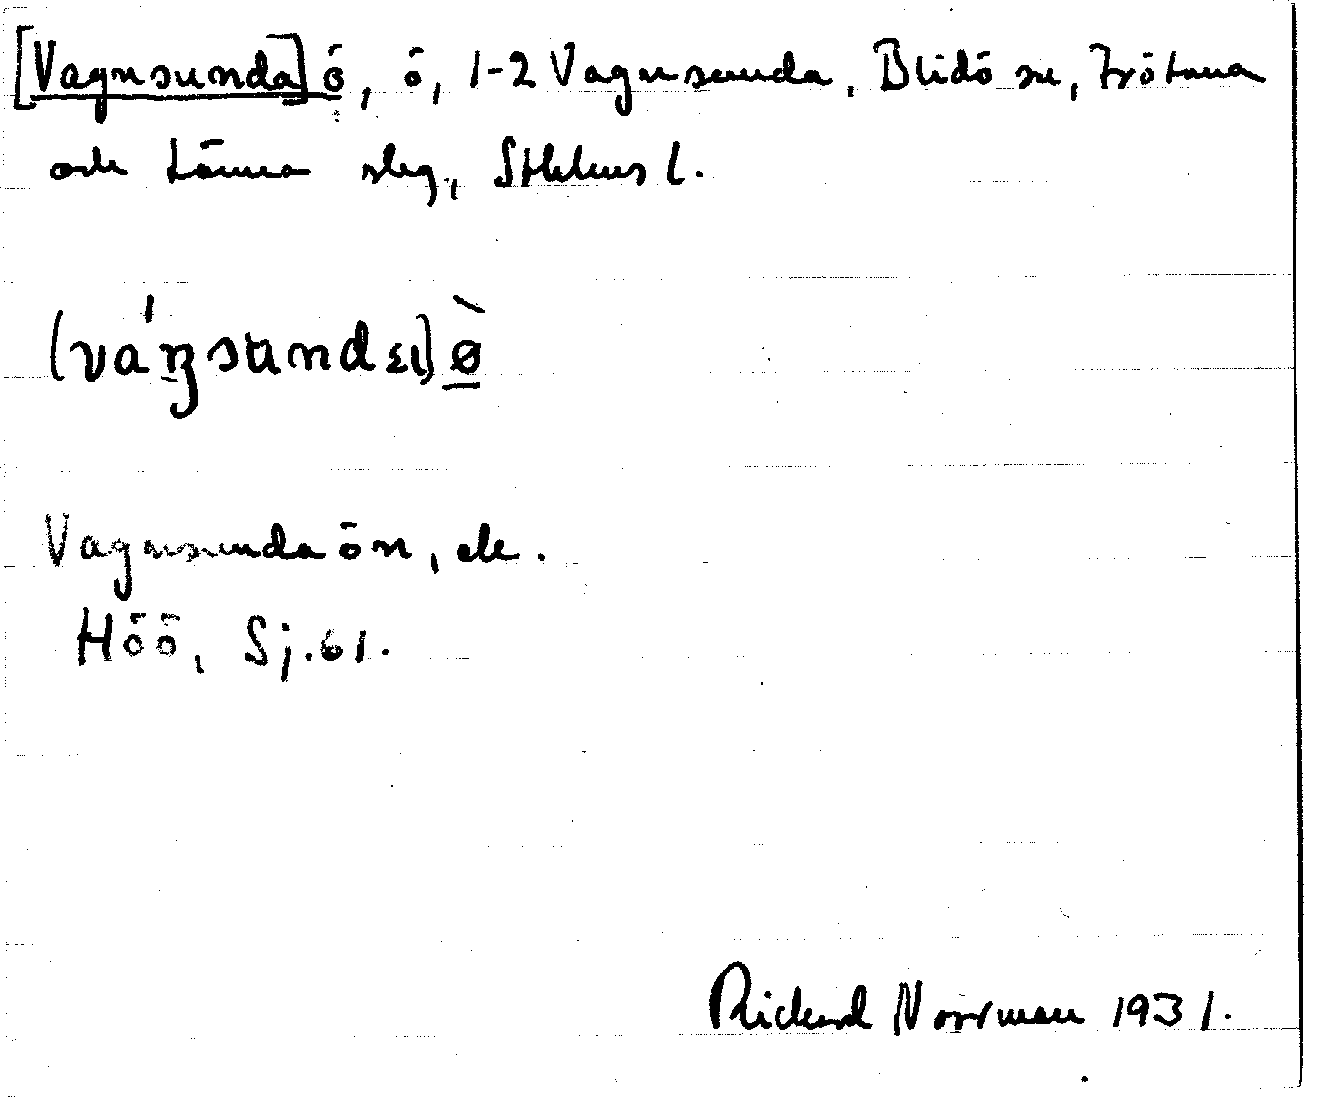 [Vagnsunda]ö, ö, 1-2 Vagnsunda, Blidö sn, Frötuna
och Länna slg, Sthlms l.
(váŋsundɑ)ø̀
Vagnsundaön, ek.
Höö, Sj.61.
Rickard Norrman 1931.